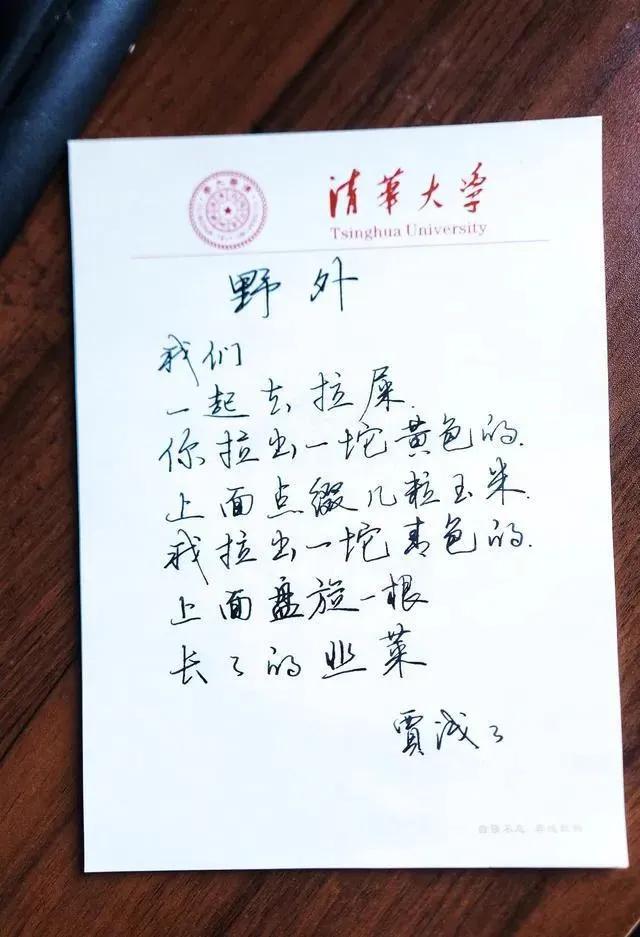 清華大学
Tsinghua University
野外
我们
一起去拉屎.
你拉出一坨黄色的.
上面点缀几粒玉米.
我拉出一坨青色的.
上面盘旋一根
长了的韭菜
賈浅了
自强不息 厚德载物